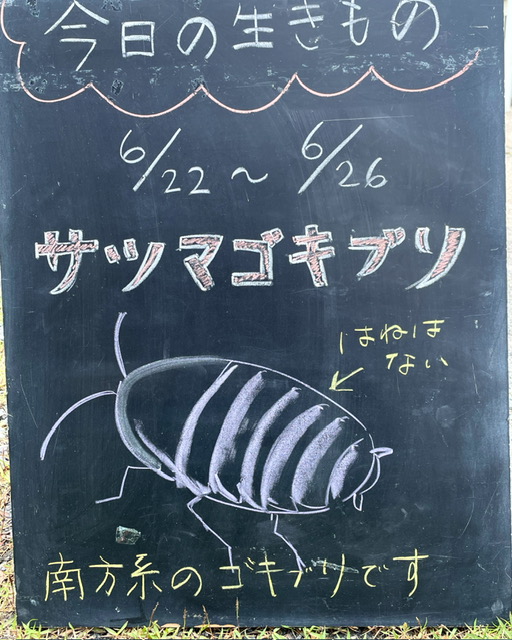 今日の生きもの
6/22～6/26
サツマゴキブリ
はねは
ない
南方系のゴキブリです